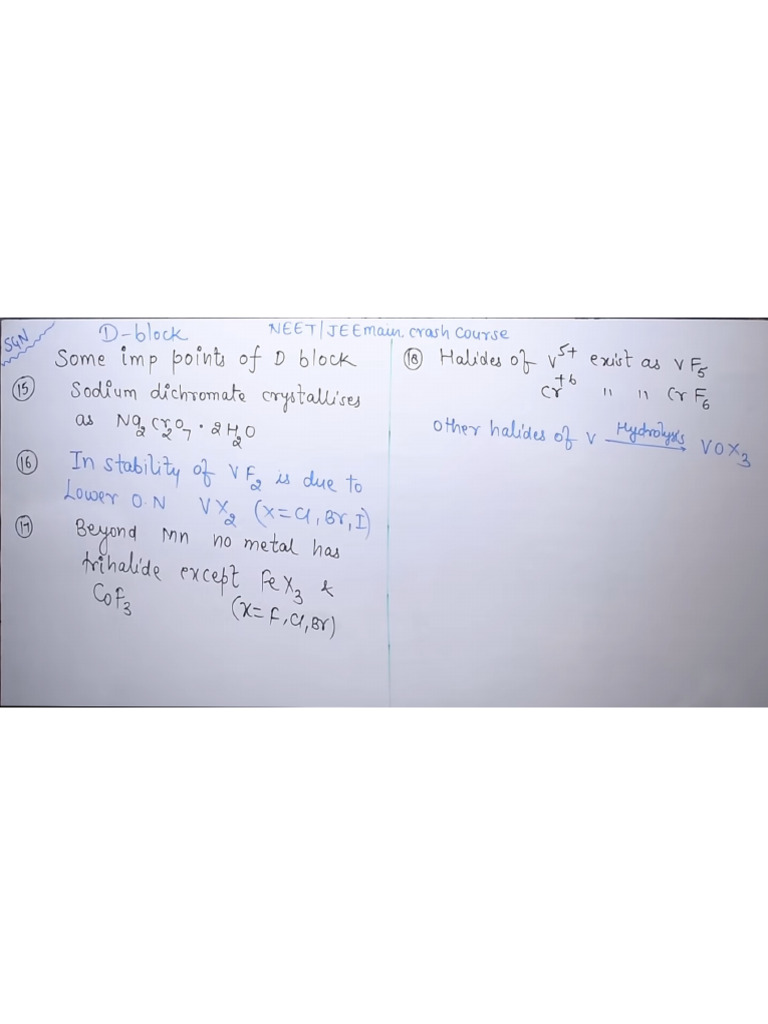 SGN
D-block NEET/JEEmain crash course
Some imp points of D block
15 Sodium dichromate crystallises
as Na2Cr2O7 · 2H2O
16 In stability of VF2 is due to
Lower O.N VX2 (X=Cl, Br, I)
17 Beyond Mn no metal has
trihalide except FeX3 &
CoF3 (X=F, Cl, Br)
18 Halides of V5+ exist as VF5
Cr+6 " " CrF6
Other halides of V Hydrolysis → VOX3